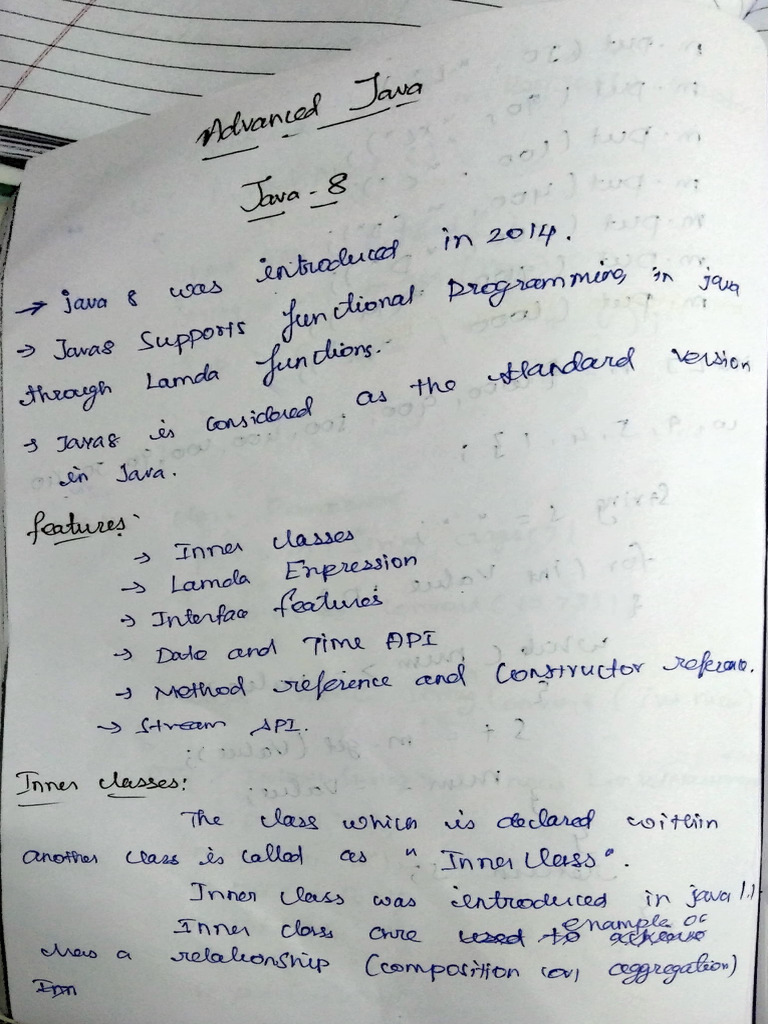 Advanced Java
Java - 8
→ java 8 was introduced in 2014.
→ Java8 Supports functional programming in java
through Lamda functions.
→ Java8 is considered as the standard version
in Java.
features:
→ Inner classes
→ Lamda Expression
→ Interface features
→ Date and Time API
→ Method reference and Constructor reference.
→ Stream API.
Inner classes:
The class which is declared within
another class is called as "Inner Class".
Inner class was introduced in java 1.1
Inner class are used to example of
has a relationship (composition (or) aggregation)
Inn